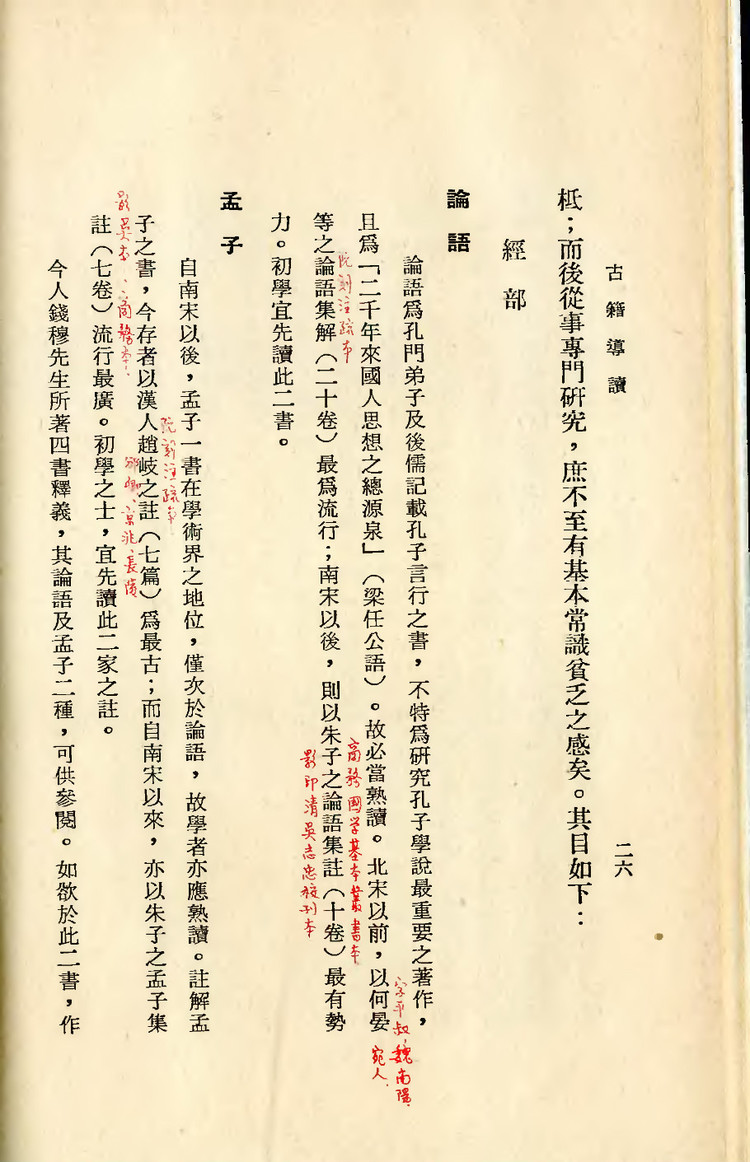 古籍導讀
二六
柢；而後從事專門研究，庶不至有基本常識貧乏之感矣。其目如下：
經部
論語
論語爲孔門弟子及後儒記載孔子言行之書，不特爲研究孔子學說最重要之著作，
字平叔，魏南陽
宛人．
且爲「二千年來國人思想之總源泉」（梁任公語）。故必當熟讀。北宋以前，以何晏
阮刻注疏本
商務國学基本叢書本
等之論語集解（二十卷）最爲流行；南宋以後，則以朱子之論語集註（十卷）最有勢
影印清吳志忠校刊本
力。初學宜先讀此二書。
孟子
自南宋以後，孟子一書在學術界之地位，僅次於論語，故學者亦應熟讀。註解孟
阮刻注疏本
子之書，今存者以漢人趙岐之註（七篇）爲最古；而自南宋以來，亦以朱子之孟子集
邠卿、京兆、長陵
影吳本、商務本．
註（七卷）流行最廣。初學之士，宜先讀此二家之註。
今人錢穆先生所著四書釋義，其論語及孟子二種，可供參閱。如欲於此二書，作